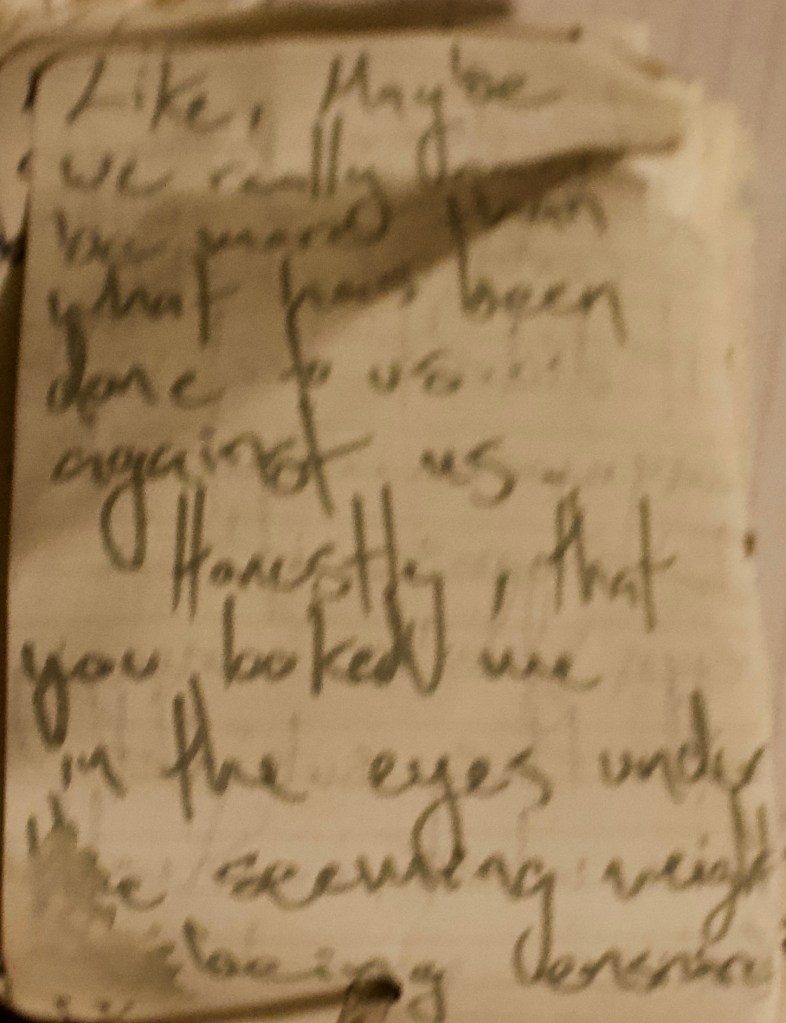 Like, Maybe
we really
be more than
what has been
done to us...
against us.
Honestly, that
you looked me
in the eyes under
the seeming weight
being